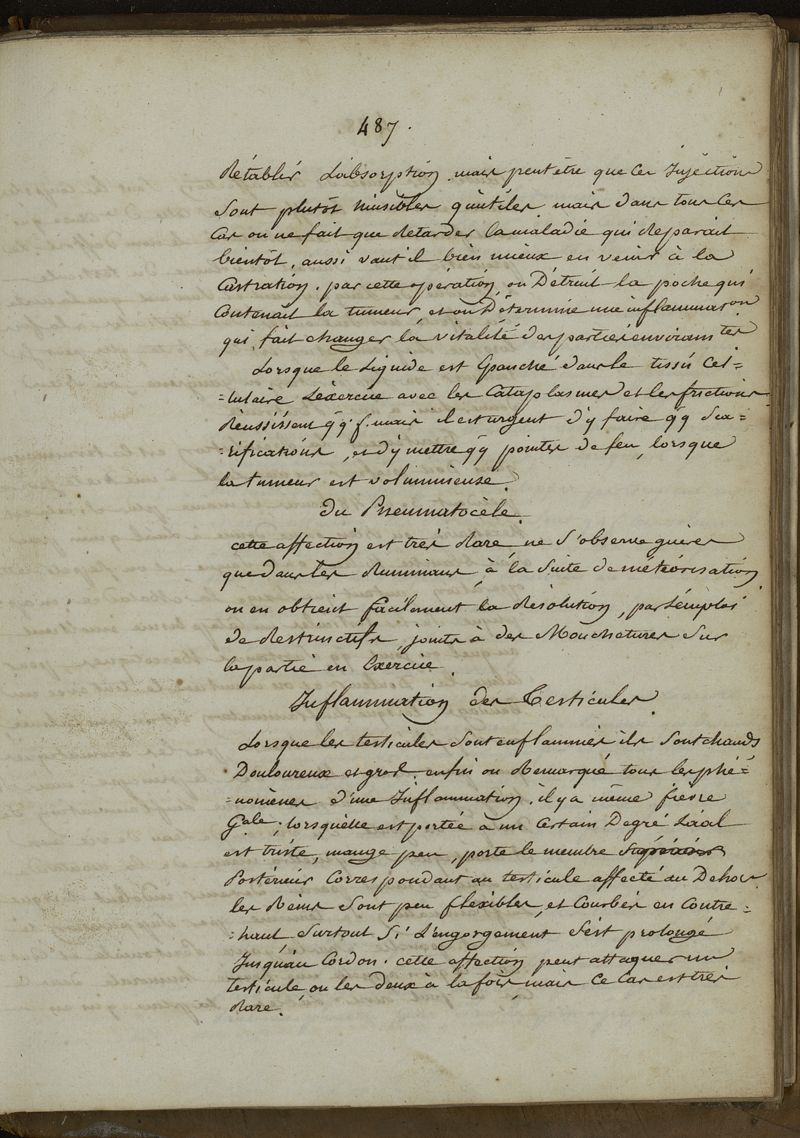 487.
Rétablir L'absorption. mais peut être que Ces Injections
Sont plutôt nuisibles qu'utiles, mais dans tous Ces
Cas on ne fait que Retarder la maladie qui Reparait
bientôt, aussi vaut il bien mieux en venir à la
Castration. par cette opération, on Détruit la poche qui
Contenait la tumeur, et on Détermine une inflammaon
qui fait changer la vitalité des parties environnantes
Lorsque le Liquide est Epanché dans le tissu Cel=
=lulaire L'exercice avec les Cataplasmes et les frictions
Réussissent qq.f. mais il est urgent d'y faire qq Sca=
=rifications, et d'y mettre qq pointes de feu, lorsque
la tumeur est volumineuse.
Du Pneumatocèle.
cette affection est très Rare, ne S'observe guères
que dans les Ruminans, à la Suite de météorisation,
on en obtient facilement la Résolution, par L'emploi
de Restrinctifs, joints à des Mouchetures Sur
la partie en Exercice.
Inflammation des Testicules.
Lorsque les testicules Sont enflammés ils Sont chauds
Douloureux et gros. enfin on Remarque tous les phé=
=nomènes d'une Inflammation. il y a même fièvre
Gale; lorsquelle est portée à un Certain Degré L'aal
est triste, mange peu, porte le membre
Postérieur Correspondant au testicule affecté au Dehors.
les Reins Sont peu flexibles, et Courbés en Contre=
=haut Surtout Si L'engorgement S'est prolongé
Jusqu'au Cordon. cette affection peut attaquer un
testicule, ou les deux à la fois, mais Ce Cas est très
Rare.